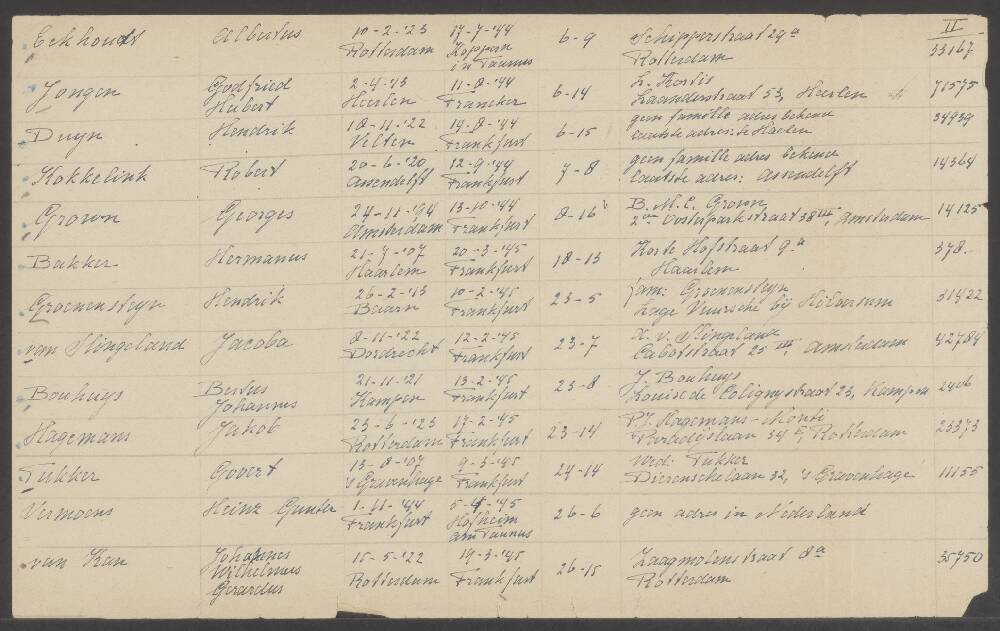 II
Eekhoudt Albertus 10-2-'23 17-7-'44 6-9 Schipperstraat 29a 53167
Rotterdam Hoppern Rotterdam
in Taunus
Jongen Godfried 2-4-'13 11-8-'44 6-14 L. Kortis 71575
Hubert Heerlen Francker Zaanderstraat 53, Heerlen
Duyn Hendrik 18-11-'22 14-8-'44 6-15 geen familie adres bekend 34939
Velsen Frankfurt laatste adres: te Haarlem
Kokkelink Robert 20-6-'20 12-9-'44 7-8 geen familie adres bekend 14364
Assendelft Frankfurt laatste adres: Assendelft
Grown Georges 24-11-'94 13-10-'44 8-16 B.M.C. Grown 14125
Amsterdam Frankfurt 2de Oosterparkstraat 38 III, Amsterdam
Bakker Hermanus 21-7-'07 20-3-'45 18-13 Korte Hofstraat 9a 378.
Haarlem Frankfurt Haarlem
Groenensteyn Hendrik 26-2-'13 10-2-'45 23-5 fam: Groenensteyn 31422
Baarn Frankfurt Lage Vuursche bij Hilversum
van Slingeland Jacoba 8-11-'22 12-2-'45 23-7 K. v. Slingeland 42784
Dordrecht Frankfurt Cabotstraat 25 III, Amsterdam
Bouhuys Bertus 21-11-'21 13-2-'45 23-8 J. Bouhuys 2406
Johannus Kampen Frankfurt Louise de Colignystraat 23, Kampen
Hagemans Jakob 23-6-'23 17-2-'45 23-14 P.J. Hagemans-Monti 23373
Rotterdam Frankfurt 34 E, Rotterdam
Tukker Govert 13-8-'07 9-3-'45 24-14 Wed: Tukker 11155
's Gravenhage Frankfurt Dierenschelaan 32, 's Gravenhage
Vermoens Heinz Gunter 1-11-'44 5-4-'45 26-6 geen adres in Nederland
Frankfurt Hofheim
am Taunus
van Kan Johannes 15-5-'22 19-3-'45 26-15 Zaagmolenstraat 8a 35750
Wilhelmus Rotterdam Frankfurt Rotterdam
Gerardus